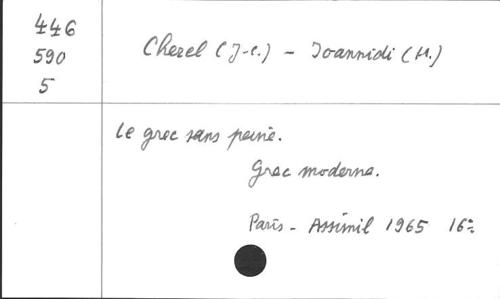 446
590
5
Cherel (J-L.) - Ioannidi (H.)
Le grec sans peine.
Grec moderne.
Paris - Assimil 1965 16º